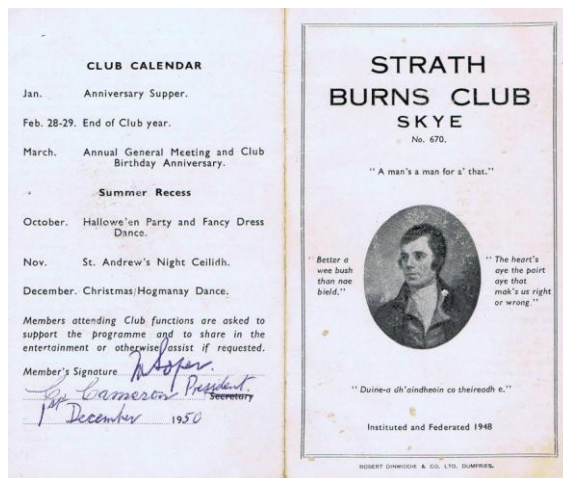 CLUB CALENDAR
Jan. Anniversary Supper.
Feb. 28-29. End of Club year.
March. Annual General Meeting and Club
Birthday Anniversary.
Summer Recess
October. Hallowe'en Party and Fancy Dress
Dance.
Nov. St. Andrew's Night Ceilidh.
December. Christmas/Hogmanay Dance.
Members attending Club functions are asked to
support the programme and to share in the
entertainment or otherwise assist if requested.
Member's Signature M Soper.
Cameron President.
Secretary
1st December 1950
STRATH
BURNS CLUB
SKYE
No. 670.
"A man's a man for a' that."
"Better a
wee bush
than nae
bield."
"The heart's
aye the pairt
aye that
mak's us right
or wrong."
"Duine-a dh'aindheoin co theireadh e."
Instituted and Federated 1948
ROBERT DINWIDDIE & CO. LTD. DUMFRIES.